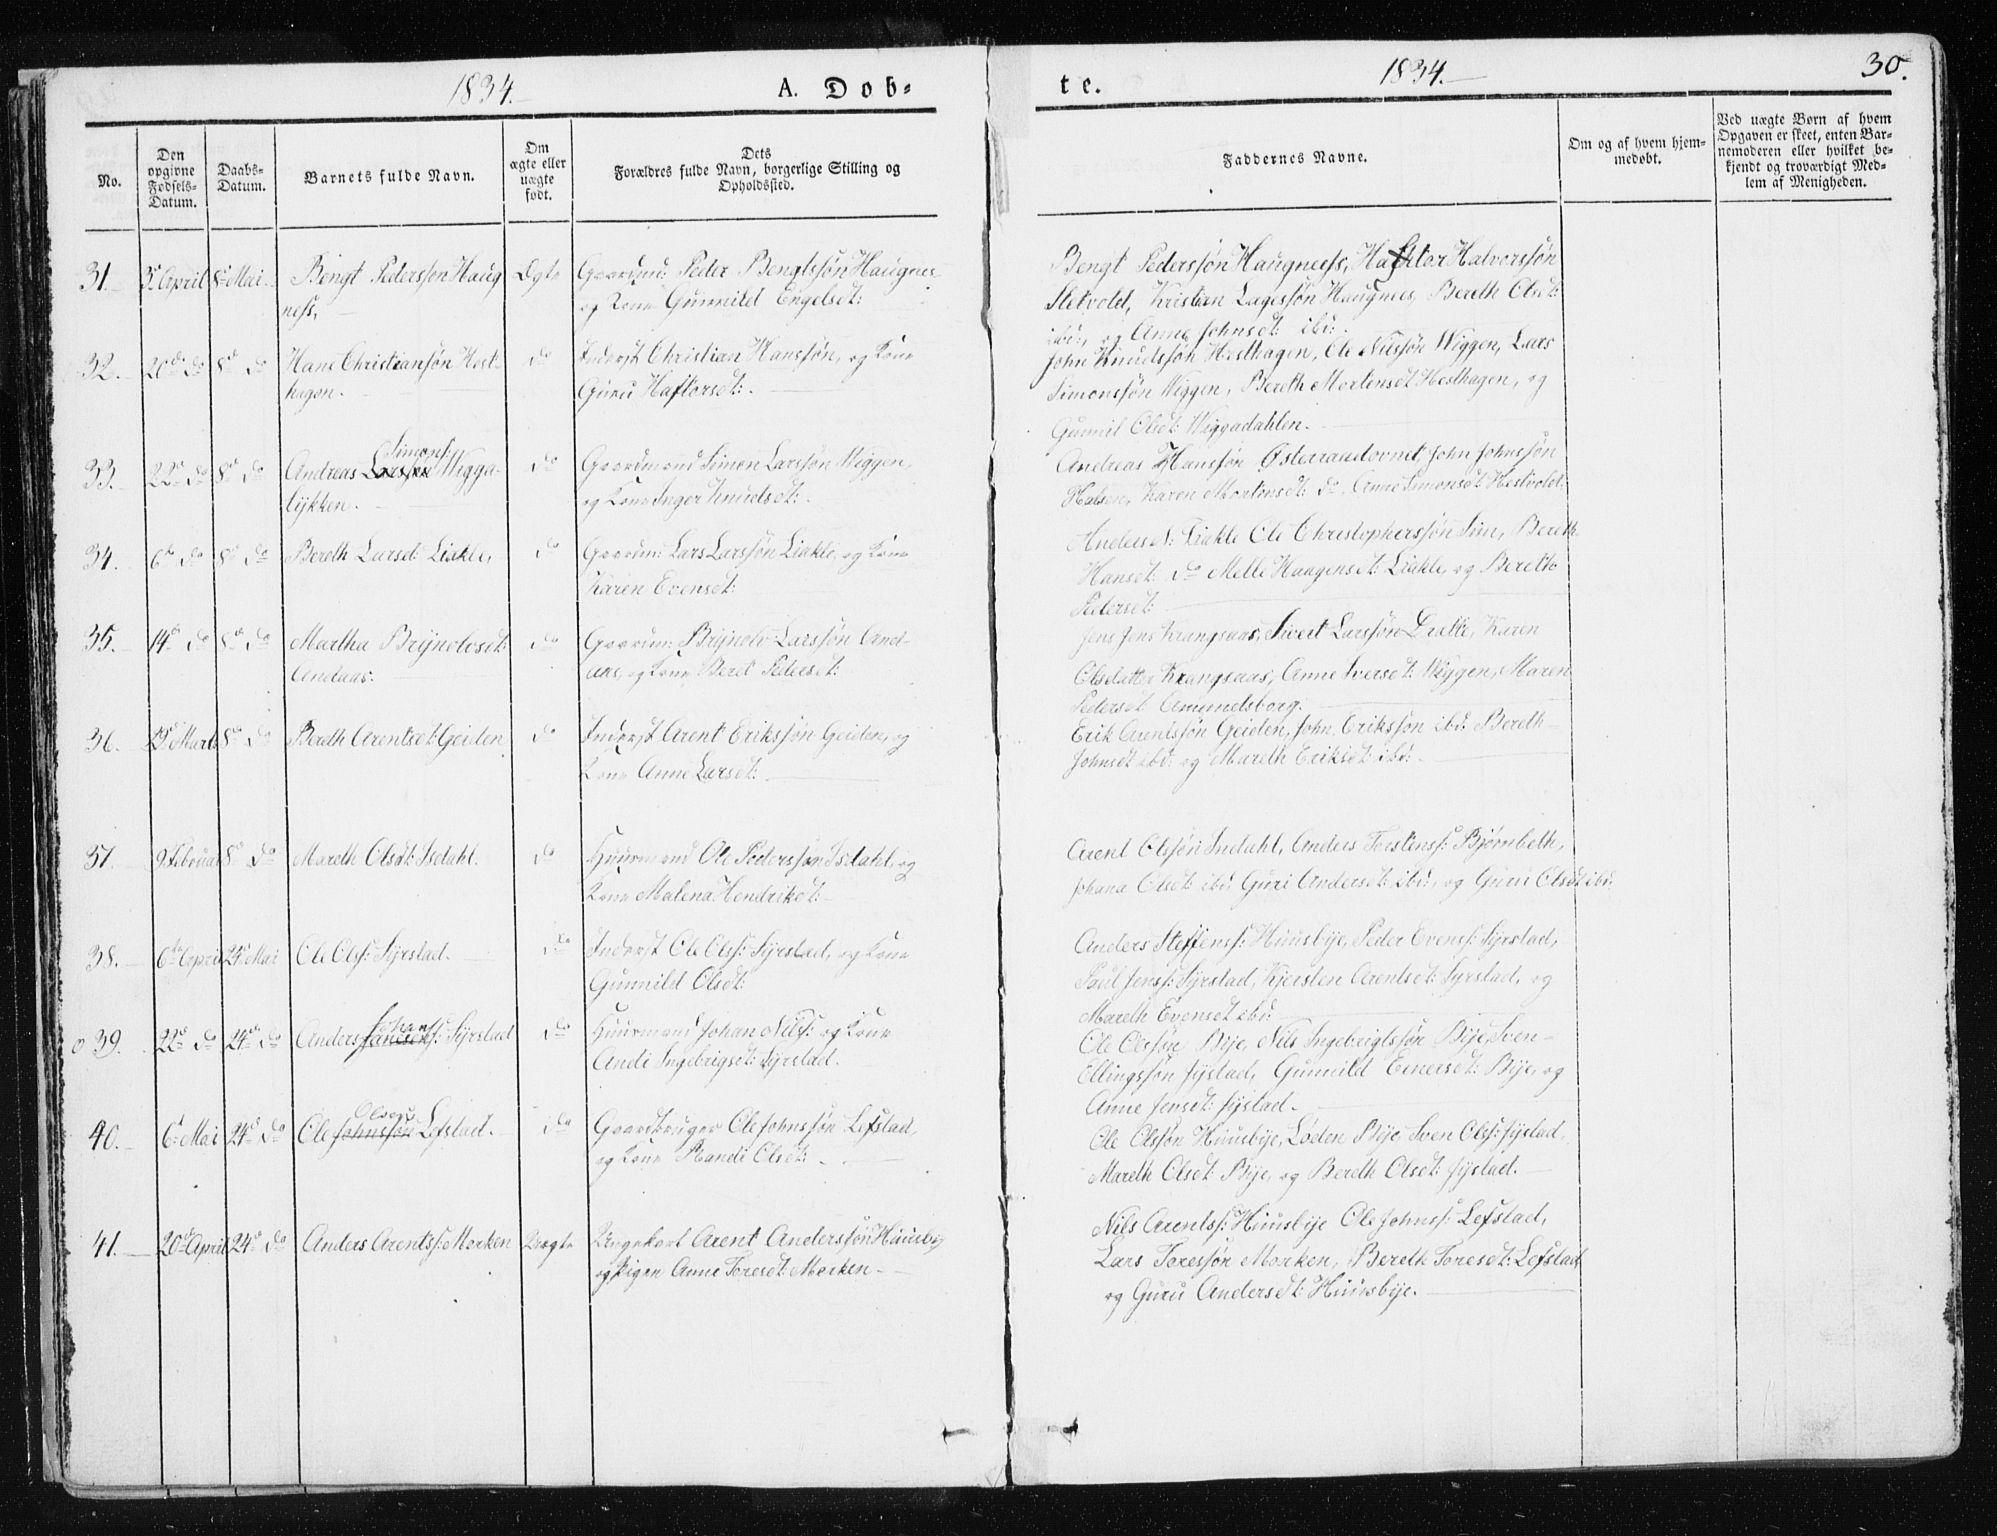 1834.
A. Dob-
te.
1834.
30.
No.
Den opgivne Fødsels-Datum.
Daabs-Datum.
Barnets fulde Navn.
Om ægte eller uægte født.
Dets
Forældres fulde Navn, borgerlige Stilling og Opholdssted.
Faddernes Navne.
Om og af hvem hjemmedøbt.
Ved uægte Børn af hvem
Opgaven er skeet, enten Bar-
nemoderen eller hvilket be-
kjendt og troværdigt Med-
lem af Menigheden.
31. 3d April 8d Mai. Bengt Pedersson Haug Ægte Gaardm: Peder Bengtssøn Haugnes
ness, og Kone Gunnild Engelsdt:
Bengt Pederssøn Haugness, Haftor Halvorssøn
Sletvold, Kristen Lagessøn Haugnes, Bereth Olsdt:
ibd:, og Anne Johnsdt: ibd:.
32. 20de do 8d do Hans Christianssøn Hest- do Inderst Christian Hanssøn, og Kone
hagen. Guru Haftorsdt:.
John Knudssøn Hesthagen, Ole Nilssøn Wiggen, Lars
Simonssøn Wiggen, Bereth Mortensdt Hesthagen, og
Gunnil Olsdt: Wiggadahlen.
33. 22d do 8d do Andreas Larssøn Simons: Wigga- do Gaardmand Simon Larssøn Wiggen,
lykken. og Kone Inger Knudsdt:.
Andreas Hanssøn Østerraadovnet John Johnssøn
Halsen, Karen Mortensdt: do. Anne Simonsdt Hestvold:
34. 6te do 8d do Bereth Larsdt: Liakle, do Gaardm: Lars Larssøn Liakle, og Kone
Karen Evensdt:
Anders N: Liakle Ole Christophersøn Sim, Bereth
Hansdt: do Melle Haagensdt: Liakle, og Bereth
Pedersdt:
35. 14d do 8d do Martha Brynolvsdt: do Gaardm: Brynolv Larssøn And-
Andaas. aas, og Kone Beret Pedersdt:
Jens Jens Krangsaas, Sivert Larssøn Drætte, Karen
Olsdatter Krangsaas, Anne Iversdt: Wiggen, Maren
Pedersdt Amundsborg.
36. Marts 8d do Bereth Arentsdt: Geiden do Inderst Arent Erikssøn Geiden, og
Kone Anne Larsdt:
Erik Arentssøn Geiden, John Erikssøn ibd: Bereth
Johnsdt ibd: og Mareth Eriksdt: ibd:.
37. 9 Februar 8d do Mareth Olsdt: Isdahl. do Huusmand Ole Pederssøn Isdahl, og
Kone Malena Hendriksdt:
Arent Olssøn Indahl, Anders Torstens: Bjørnbeth,
Johana Olsdt: ibd: Guri Andersdt: ibd:, og Guru Olsdt ibd:
38. 6te April 24d Mai Ole Ols: Syrstad. do Inderst Ole Ols: Syrstad, og Kone
Gunnild Olsdt:
Anders Steffens: Huusbye, Peder Evens: Syrstad,
Paul Jens: Syrstad, Kjersten Arentsdt: Syrstad, og
Mareth Evensdt ibd:
39. 22d do 24d do Anders Johans: Syrstad do Huusmand Johan Nils: og Kone
Andi Ingebrigsdt: Syrstad.
Ole Olssøn Bye, Nils Ingebrigtssøn Bye, Sven
Ellingssøn Systad, Gunnild Einersdt: Bye, og
Anne Jensdt: Systad.
40. 6te Mai 24d do Ole Johnssøn Olsøn Lefstad. do Gaardbruger Ole Johnssøn Lefstad,
og Kone Randi Olsdt:.
Ole Olssøn Huusbye, Løden Bye, Sven Ols: Systad,
Mareth Olsdt: Bye, og Bereth Olsdt: Systad.
41. 20de April 24d do Anders Arents: Morken Uægte Ungekarl Arent Anderssøn Huusby
og Pigen Anne Toresdt: Morken.
Nils Arents: Huusbye Ole Johns: Lefstad,
Lars Toressøn Morken, Bereth Toresdt: Lefstad
og Guru Andersdt: Huusbye.